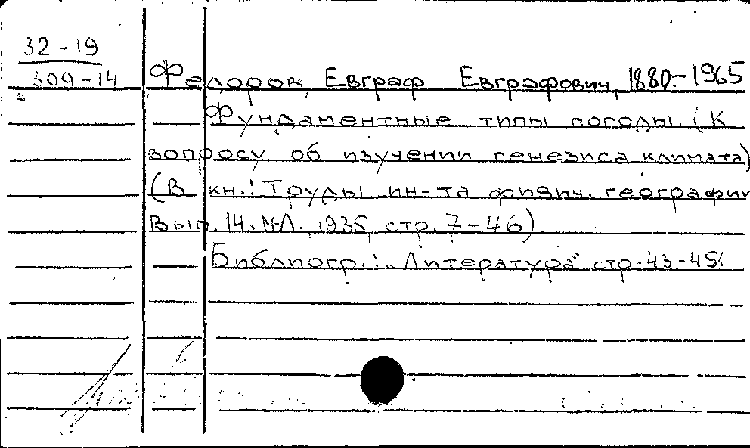 32-19
309-14
Федоров, Евграф Евграфович, 1880-1965
Фундаментные типы погоды. (К
вопросу об изучении генезиса климата)
(В кн.: Труды ин-та физич. географии
Вып. 14. М-Л. 1935, стр. 7-46)
Библиогр.: "Литература" стр. 43-45.